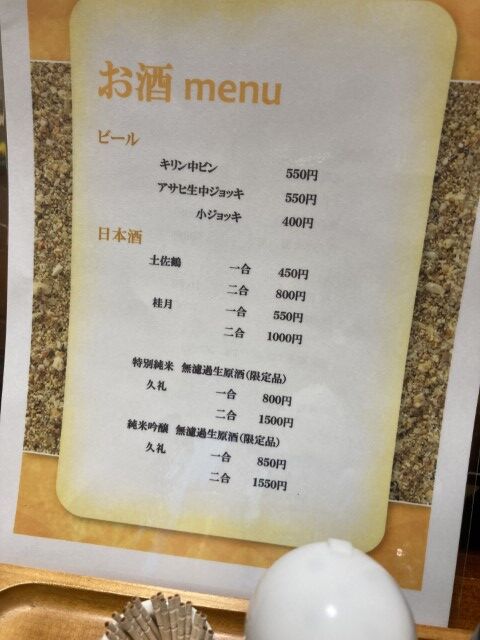 お酒 menu
ビール
キリン中ビン 550円
アサヒ生中ジョッキ 550円
小ジョッキ 400円
日本酒
土佐鶴 一合 450円
二合 800円
桂月 一合 550円
二合 1000円
特別純米 無濾過生原酒(限定品)
久礼 一合 800円
二合 1500円
純米吟醸 無濾過生原酒(限定品)
久礼 一合 850円
二合 1550円